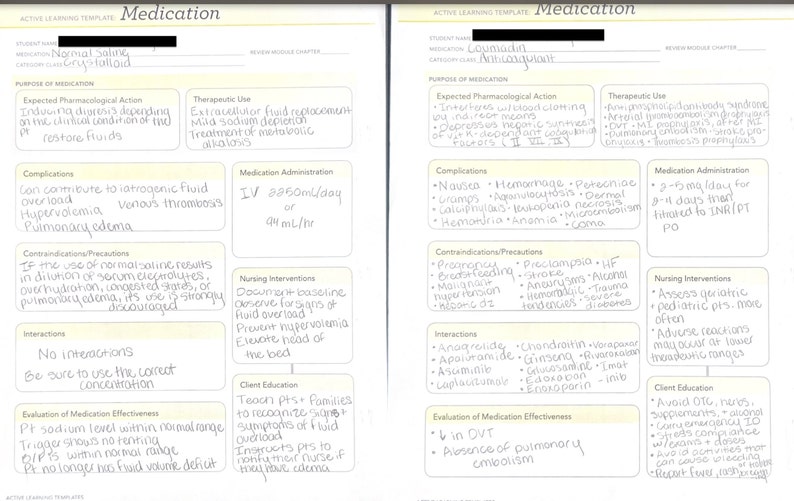 ACTIVE LEARNING TEMPLATE: Medication
STUDENT NAME
MEDICATION Normal Saline
REVIEW MODULE CHAPTER
CATEGORY CLASS Crystalloid
PURPOSE OF MEDICATION
Expected Pharmacological Action
Inducing diuresis depending
on the clinical condition of the
pt
restore fluids
Therapeutic Use
Extracellular fluid replacement
Mild sodium depletion
Treatment of metabolic
alkalosis
Complications
Can contribute to iatrogenic fluid
overload
venous thrombosis
Hypervolemia
Pulmonary edema
Medication Administration
IV 2250mL/day
or
94 mL/hr
Contraindications/Precautions
If the use of normal saline results
in dilution of serum electrolytes,
overhydration, congested states, or
pulmonary edema, its use is strongly
discouraged
Nursing Interventions
Document baseline
Observe for signs of
fluid overload
Prevent hypervolemia
Elevate head of
the bed
Interactions
No interactions
Be sure to use the correct
concentration
Client Education
Teach pts + Families
to recognize signs +
symptoms of fluid
overload
Instructs pts to
notify their nurse if
they have edema
Evaluation of Medication Effectiveness
Pt sodium level within normal range
shows no tenting
within normal range
Pt no longer has fluid volume deficit
ACTIVE LEARNING TEMPLATES
ACTIVE LEARNING TEMPLATE: Medication
STUDENT NAME
MEDICATION Coumadin
REVIEW MODULE CHAPTER
CATEGORY CLASS Anticoagulant
PURPOSE OF MEDICATION
Expected Pharmacological Action
• Interferes w/ blood clotting
by indirect means
• Depresses hepatic synthesis
of vit K-dependant coagulation
factors (II VII, IX)
Therapeutic Use
• Antiphospholipid antibody syndrome
• Arterial thromboembolism prophylaxis
• DVT • MI prophylaxis, after MI
• Pulmonary embolism • Stroke pro-
onylaxis • Thrombosis prophylaxis
Complications
• Nausea • Hemorrhage • Petechiae
• Cramps • Agranulocytosis • Dermal
• Calciphylaxis • leukopenia necrosis
• Hematuria • Anemia • Microembolism
• Coma
Medication Administration
• 2-5 mg/day for
2-4 days then
titrated to INR/PT
PO
Contraindications/Precautions
• Pregnancy • Preclampsia • HF
• Breastfeeding • Stroke
• Malignant • Aneurysms • Alcohol
hypertension • Hemorragic • Trauma
• Hepatic dz tendencies • severe
diabetes
Nursing Interventions
• Assess geriatric
+ pediatric pts. more
often
• Adverse reactions
may occur at lower
therapeutic ranges
Interactions
• Anagrelide • Chondroitin • Vorapaxar
• Apalutamide • Ginseng • Rivaroxaban
• Asciminib • Glucosamine • Imat
• Caplacizumab • Edoxaban - inib
• Enoxaparin
Client Education
• Avoid OTC, herbs,
supplements, + alcohol
• Carry emergency ID
• Stress compliance
w/ exams + doses
• Avoid activities that
can cause bleeding
• Report fever, rash,
Evaluation of Medication Effectiveness
• ↓ in DVT
• Absence of pulmonary
embolism